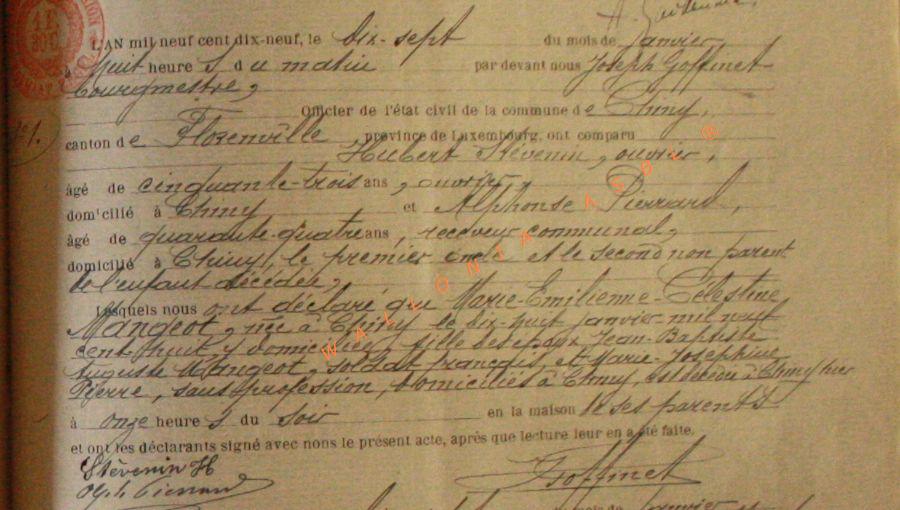 L'AN mil neuf cent dix-neuf, le dix-sept du mois de janvier
à huit heures du matin par devant nous Joseph Goffinet
bourgmestre,
Officier de l'état civil de la commune de Chiny,
N° 1.
canton de Florenville, province de Luxembourg, ont comparu
Hubert Stévenin, ouvrier,
âgé de cinquante-trois ans, ouvrier,
domicilié à Chiny et Alphonse Pierrard,
âgé de quarante-quatre ans, receveur communal,
domicilié à Chiny, le premier oncle et le second non parent
de l'enfant décédée,
Lesquels nous ont déclaré que Marie-Emilienne-Célestine
Mangeot, née à Chiny le dix-huit janvier mil neuf
cent huit, y domiciliée, fille des époux Jean-Baptiste
Auguste Mangeot, soldat français, et Marie-Joséphine
Pierre, sans profession, domiciliés à Chiny, est décédée à Chiny hier
à onze heures du soir en la maison de ses parents
et ont les déclarants signé avec nous le présent acte, après que lecture leur en a été faite.
Stévenin H
Goffinet
WALLONIA ASBL ®
janvier